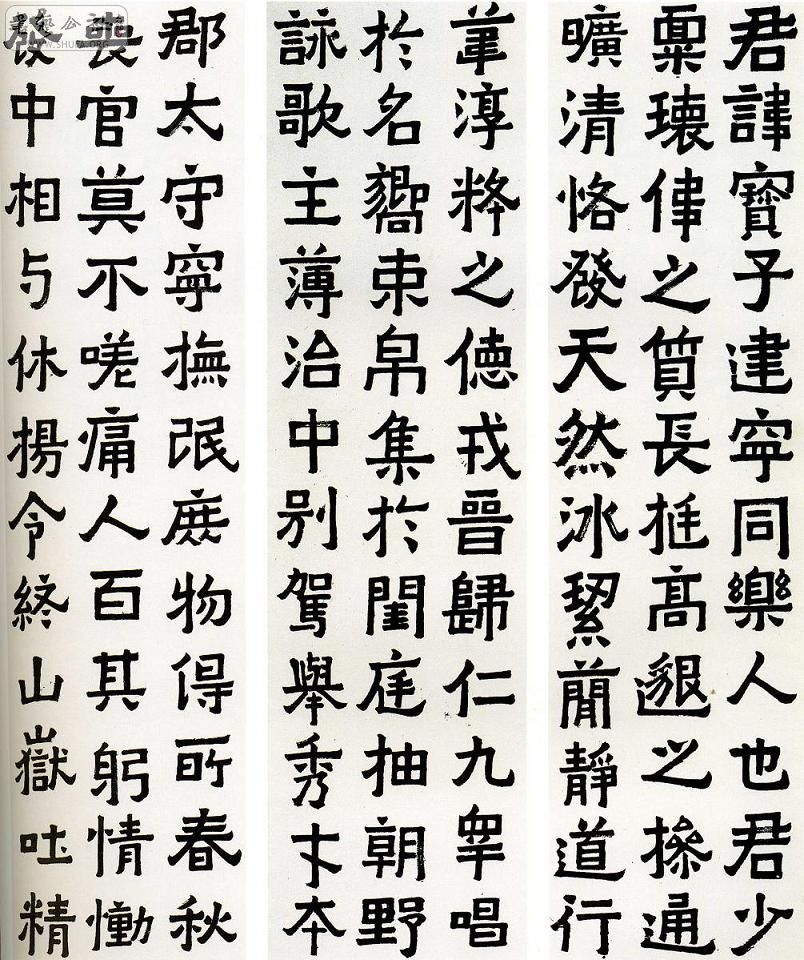 君諱寶子建寧同樂人也君少
稟瓌偉之質長挺高邈之操通
曠清恪發天然冰絜簡靜道行
葦淳粹之德戎晉歸仁九皋唱
於名嚮束帛集於閨庭抽朝野
詠歌主薄治中別駕舉秀才本
郡太守寧撫氓庶物得所春秋
喪官莫不嗟痛人百其躬情慟
發中相与休揚令終山嶽吐精
WWW.SHUFA.ORG